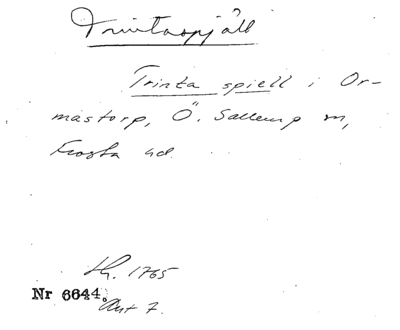 Trintaspjäll
Trinta spiell i Or-
mastorp, Ö. Sallerup sn,
Frosta hd.
Lh. 1765
Nr 6644. Akt 7.